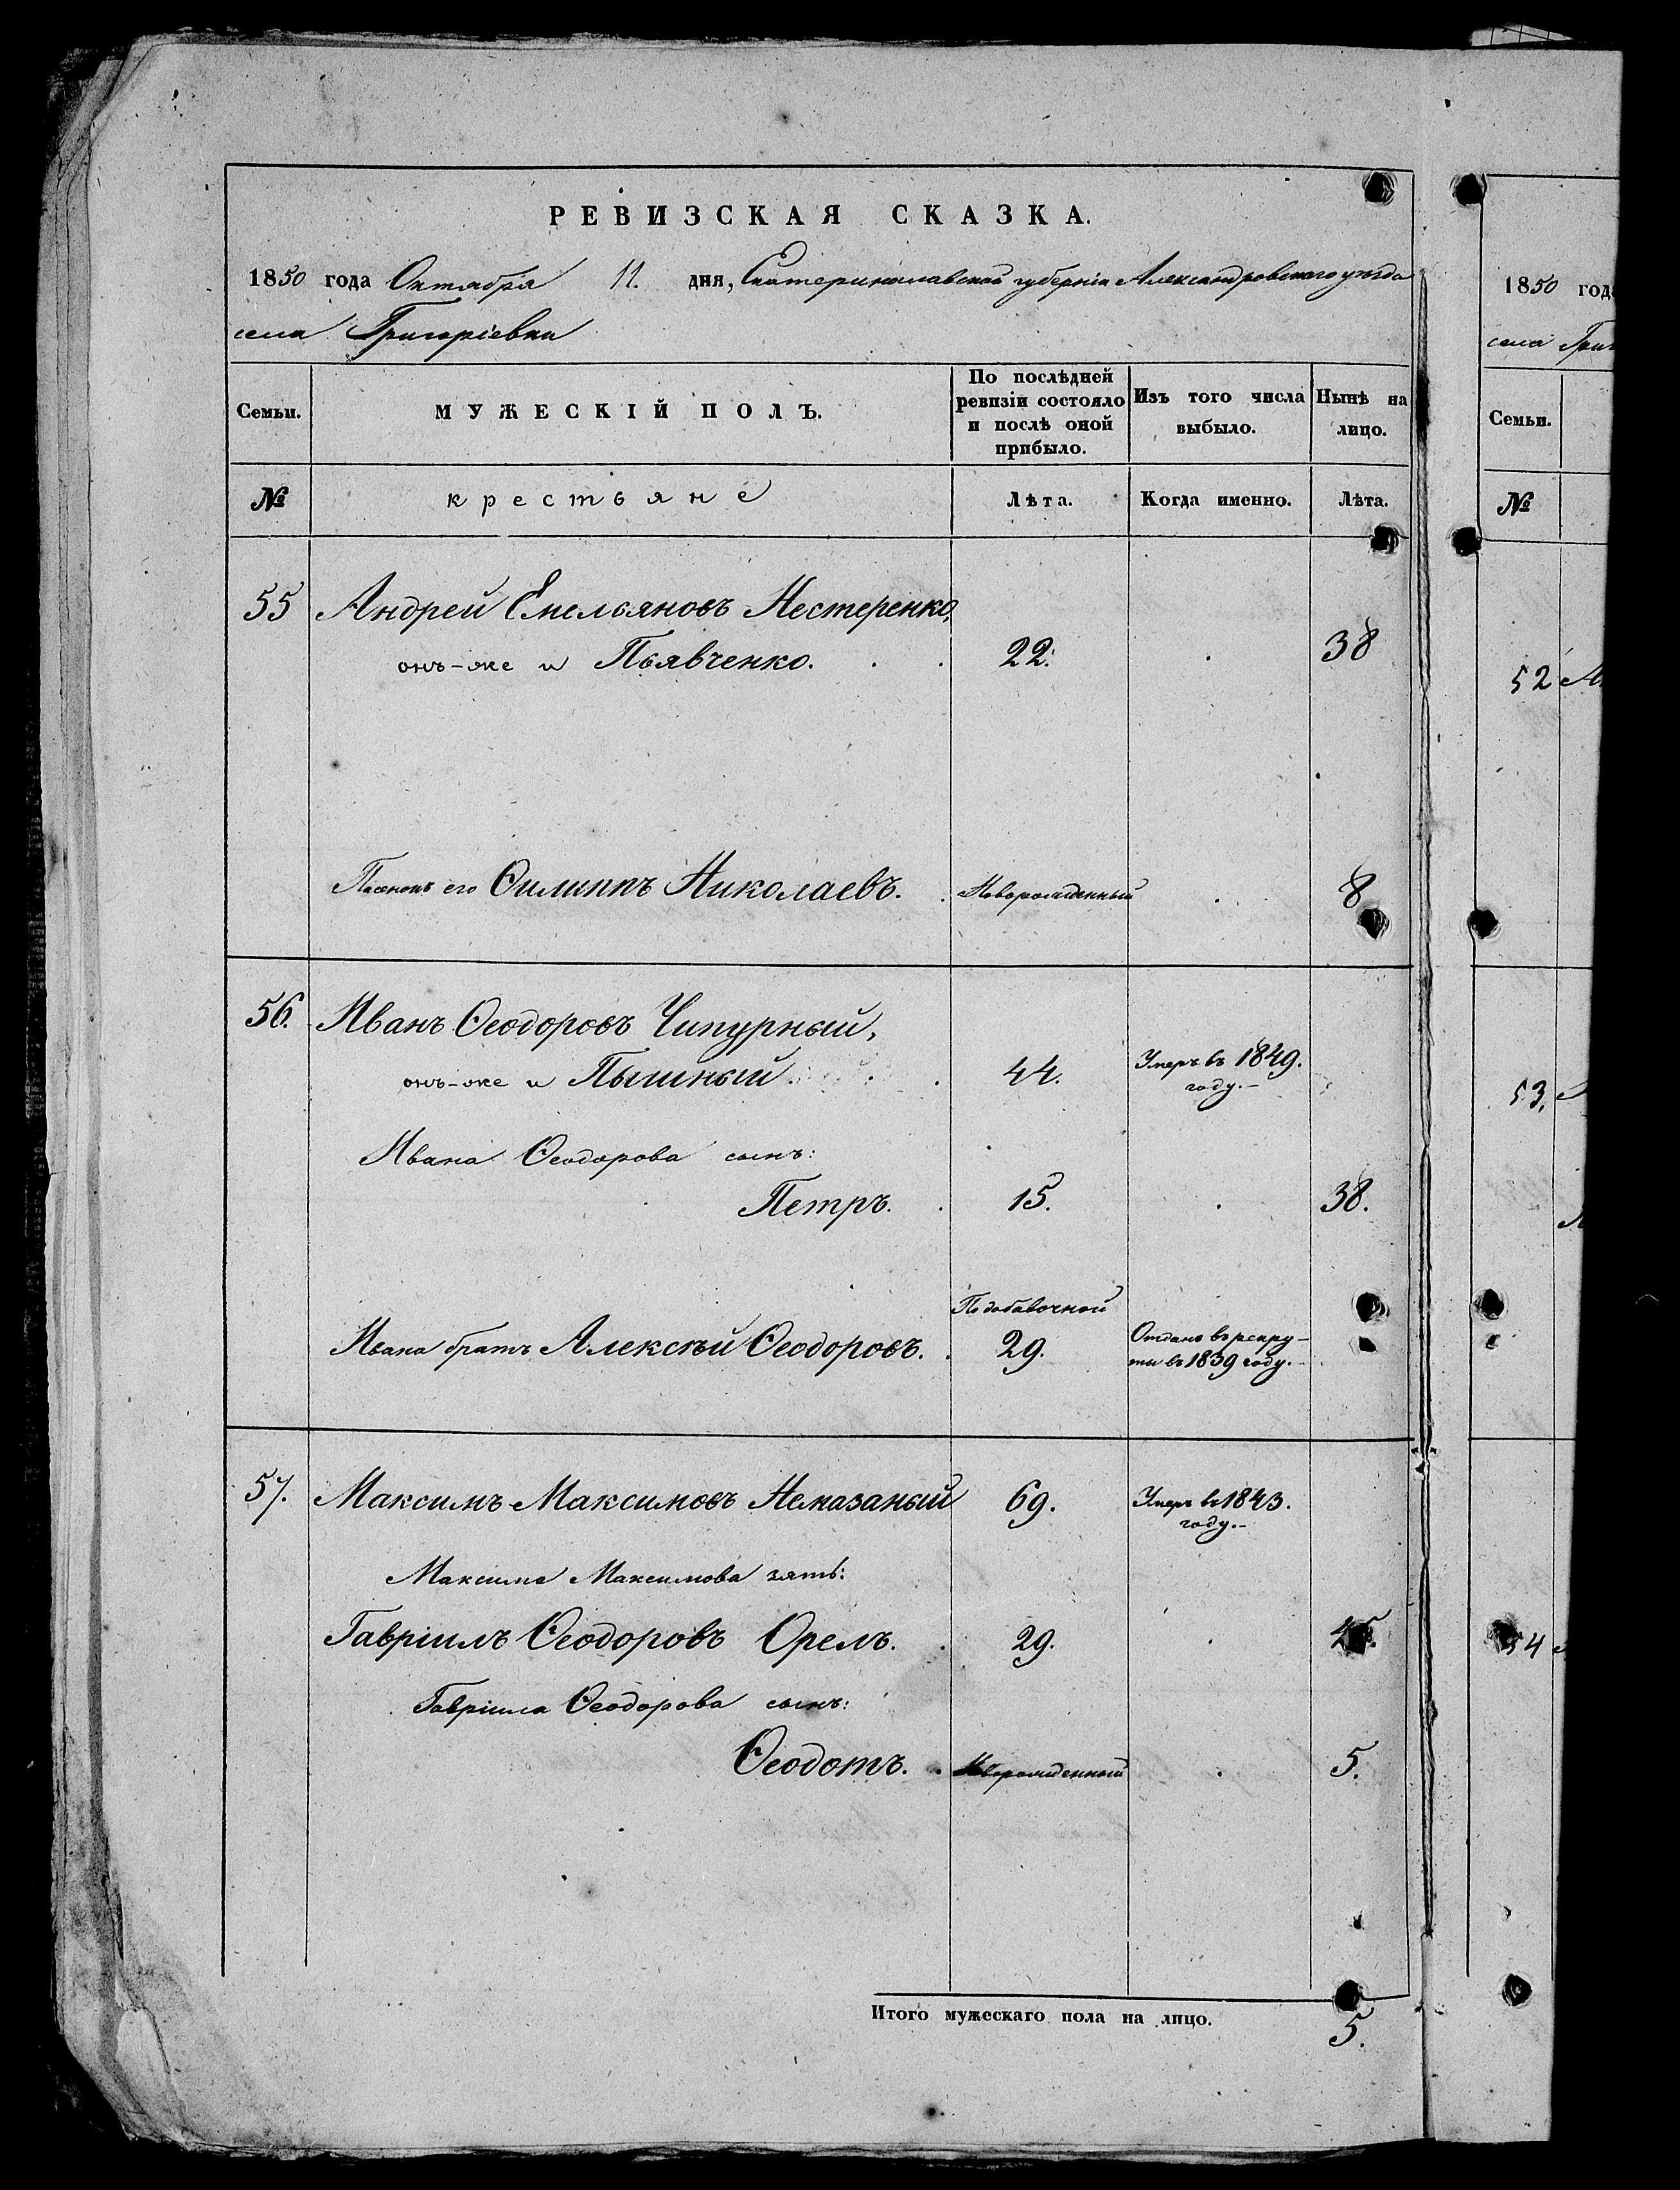 РЕВИЗСКАЯ СКАЗКА.
1850 года Октября 11. дня, Екатеринославской губернiи Александровскаго уѣзда
села Григорiевки
Семьи. МУЖЕСКIЙ ПОЛЪ. По послѣдней ревизiи состояло и послѣ оной прибыло. Изъ того числа выбыло. Нынѣ на лицо.
№ крестьяне Лѣта. Когда именно. Лѣта.
55 Андрей Емельяновъ Нестеренко,
онъ-же и Пьявченко. 22. 38
его Ѳилиппъ Николаевъ. Новорожденный 8
56. Иванъ Ѳеодоровъ Чипурный,
онъ-же и Пышный. 44. Умеръ въ 1849.
году.
Ивана Ѳеодорова сынъ:
Петръ. 15. 38.
По добавочной
Ивана братъ Алексѣй Ѳеодоровъ. 29. Отданъ въ рекру-
ты въ 1839 году.
57. Максимъ Максимовъ Немазаный 69. Умеръ въ 1843.
году.
Максима Максимова зять:
Гаврiилъ Ѳеодоровъ Орелъ. 29.
Гаврiила Ѳеодорова сынъ:
Ѳеодотъ. Новорожденный 5.
Итого мужескаго пола на лицо. 5.
1850 года
села
Семьи.
№
52
53,
54